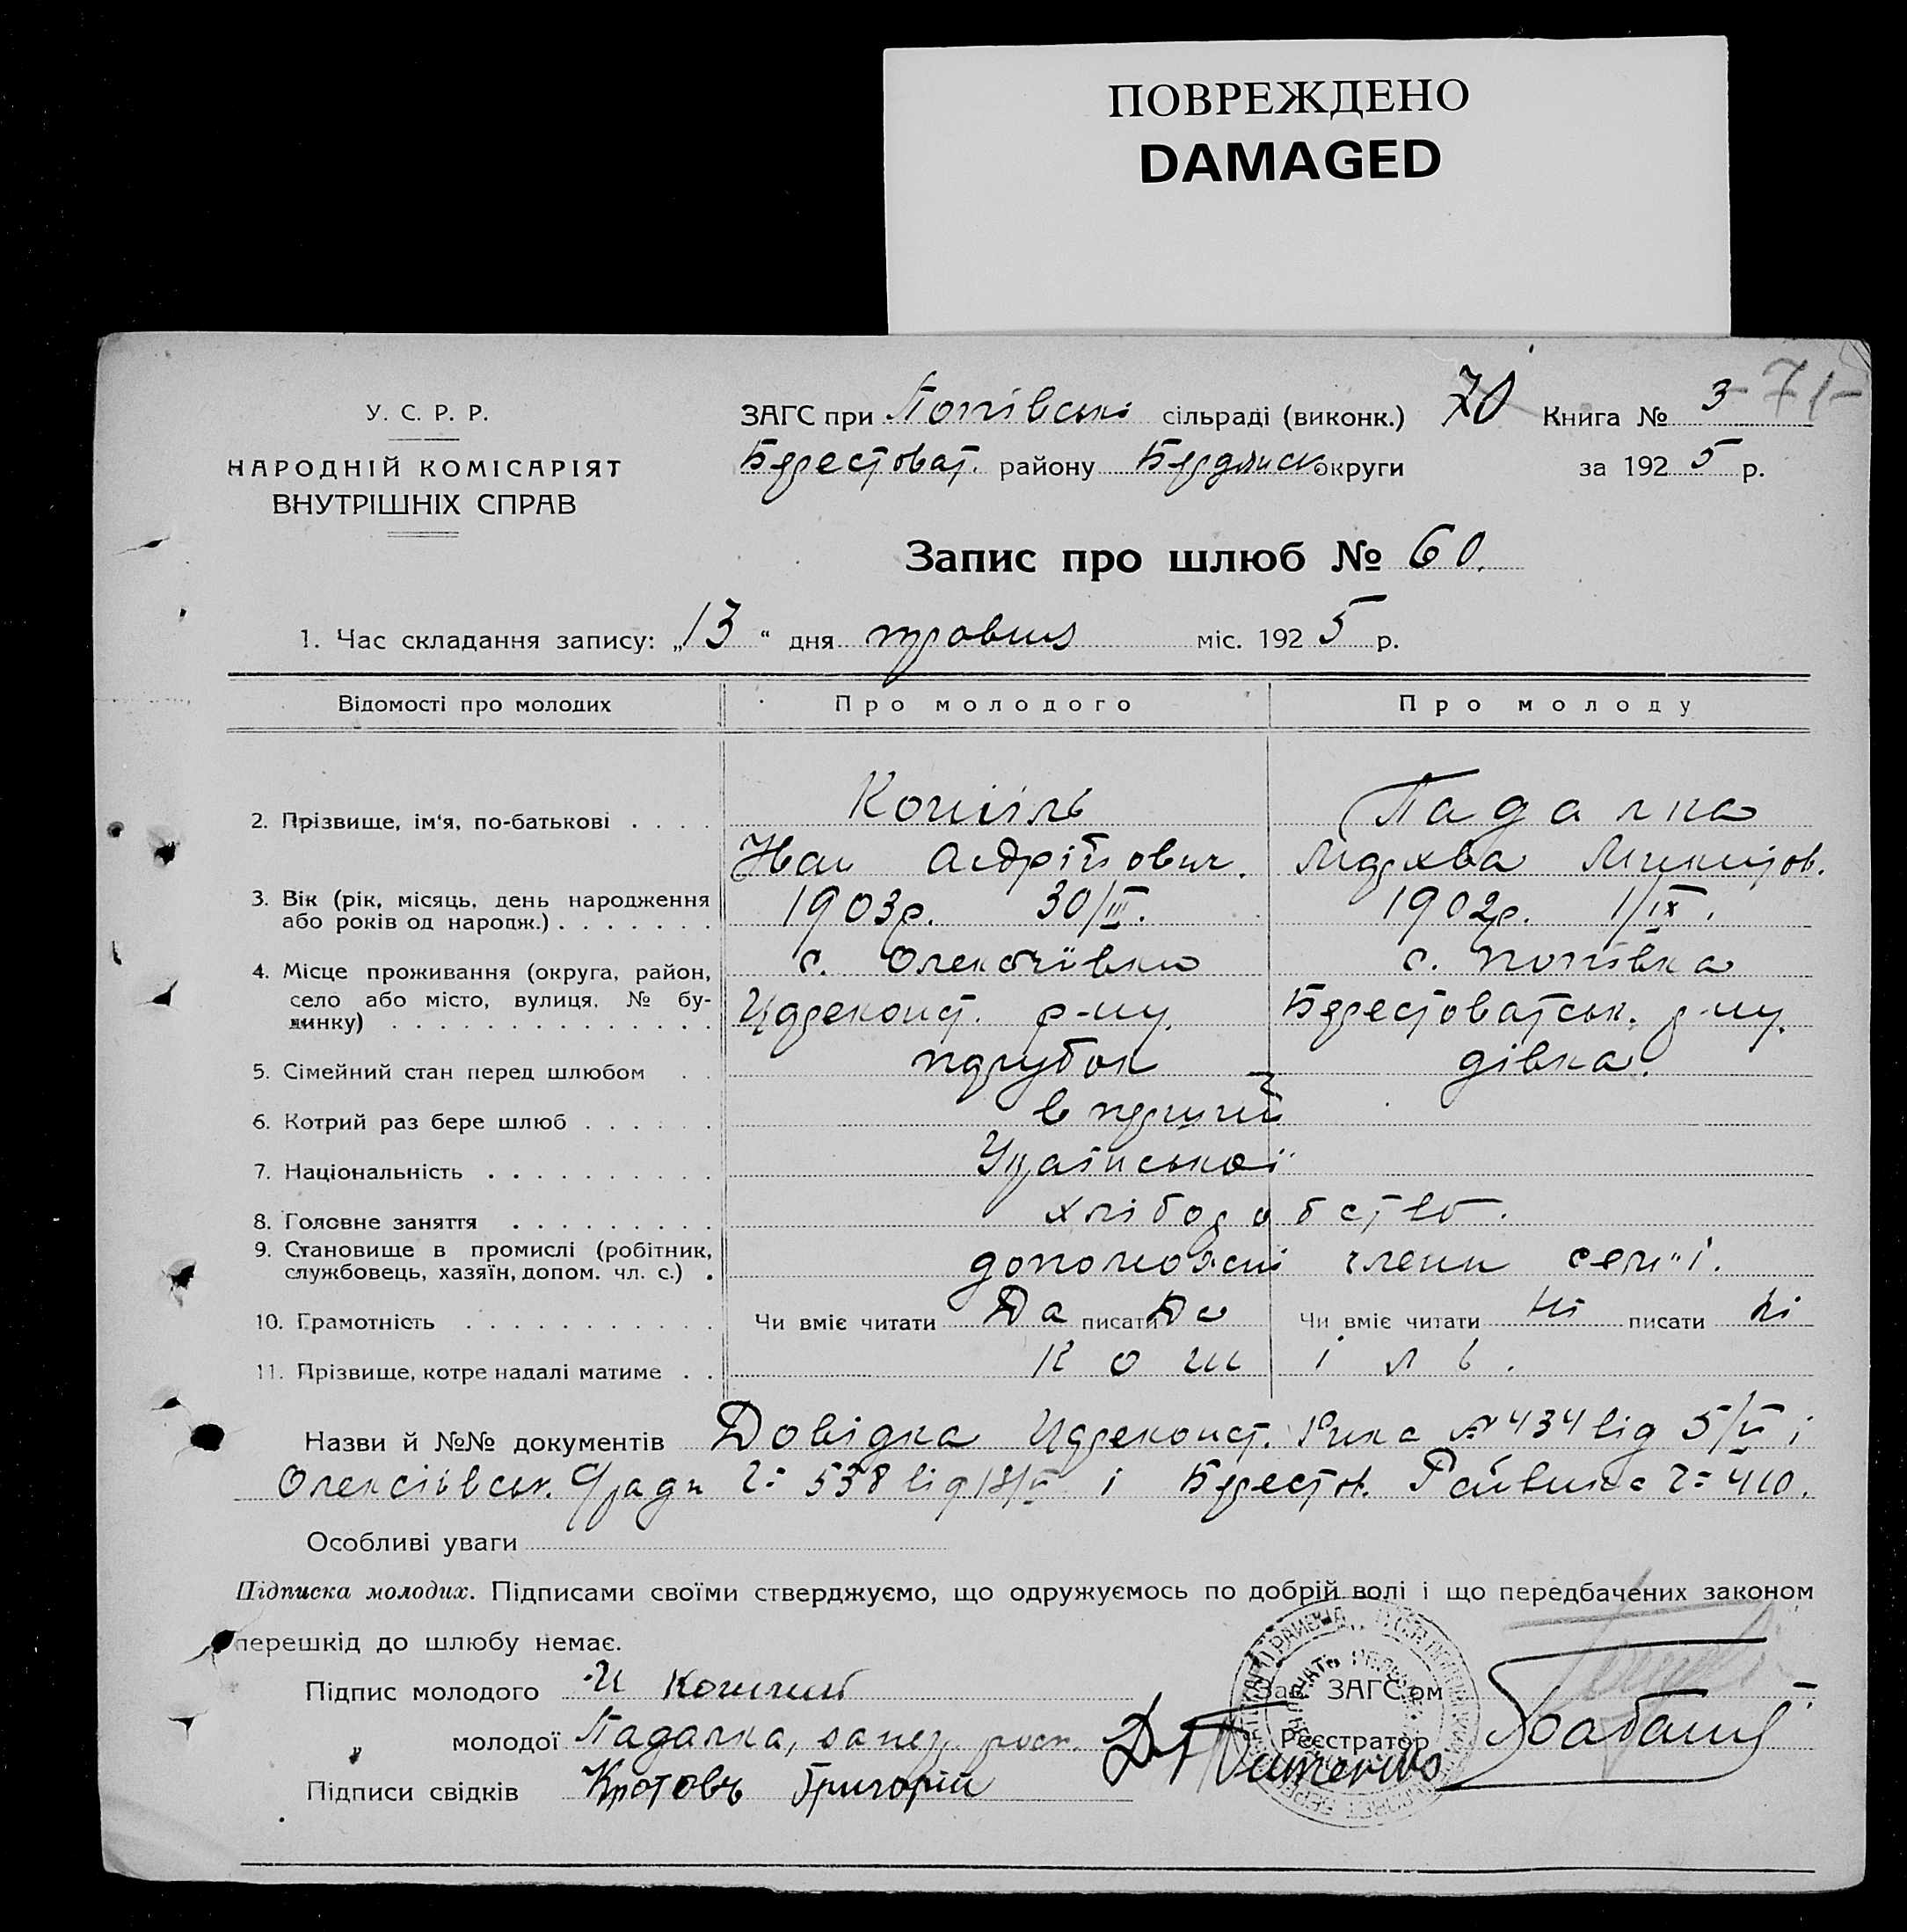 ПОВРЕЖДЕНО
DAMAGED
У. С. Р. Р.
НАРОДНІЙ КОМІСАРІЯТ
ВНУТРІШНІХ СПРАВ
ЗАГС при Попівські сільраді (виконк.) 70 Книга № 3 -71-
Берестоват. району Бердянськ округи за 1925 р.
Запис про шлюб № 60.
1. Час складання запису: „13“ дня травня міс. 1925 р.
Відомості про молодих Про молодого Про молоду
2. Прізвище, ім'я, по-батькові Кошіль Падалка
Іван Андрійович.
3. Вік (рік, місяць, день народження 1903р. 30/III. 1902р. 1/IX.
або років од народж.)
4. Місце проживання (округа, район, с. Олексіївка с. Попівка
село або місто, вулиця, № бу- Цареконст. р-ну. Берестоватськ. р-ну.
динку)
5. Сімейний стан перед шлюбом парубок дівка.
6. Котрий раз бере шлюб в перший
7. Національність Української
8. Головне заняття хліборобство.
9. Становище в промислі (робітник, допоможні члени сем"ї.
службовець, хазяїн, допом. чл. с.)
10. Грамотність Чи вміє читати Да писати Да Чи вміє читати Ні писати Ні
11. Прізвище, котре надалі матиме Кошіль.
Назви й №№ документів Довідка Цареконст. Рика № 434 від 5/V і
Олексіївськ. С/ради Ч= 538 від і Берестов. Райвика Ч= 410.
Особливі уваги
Підписка молодих. Підписами своїми стверджуємо, що одружуємось по добрій волі і що передбачених законом
перешкід до шлюбу немає.
Підпис молодого И Кошилий Зав. ЗАГС'ом
„ молодої Падалка, Реєстратор
Підписи свідків Кротовъ Григорій